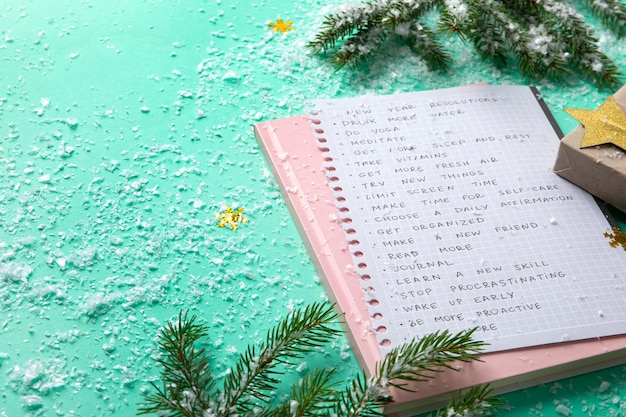 NEW YEAR RESOLUTIONS
DRINK MORE WATER
· DO YOGA
· MEDITATE
· GET MORE SLEEP AND REST
· TAKE VITAMINS
· GET MORE FRESH AIR
· TRY NEW THINGS
· LIMIT SCREEN TIME
· MAKE TIME FOR SELF-CARE
· CHOOSE A DAILY AFFIRMATION
· GET ORGANIZED
· MAKE A NEW FRIEND
· READ MORE
· JOURNAL
· LEARN A NEW SKILL
· STOP PROCRASTINATING
· WAKE UP EARLY
· BE MORE PROACTIVE